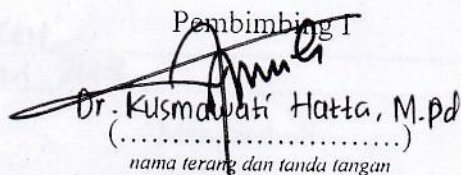 Pembimbing I
Dr. Kusmawati Hatta, M.Pd
(..............................)
nama terang dan tanda tangan